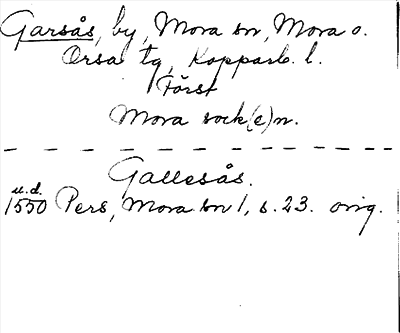 Garsås, by, Mora sn, Mora o.
Orsa tg, Kopparb. l.
Först
Mora sock(e)n.
Gallesås.
u.d.
1550 Pers, Mora sn 1, s. 23. orig.